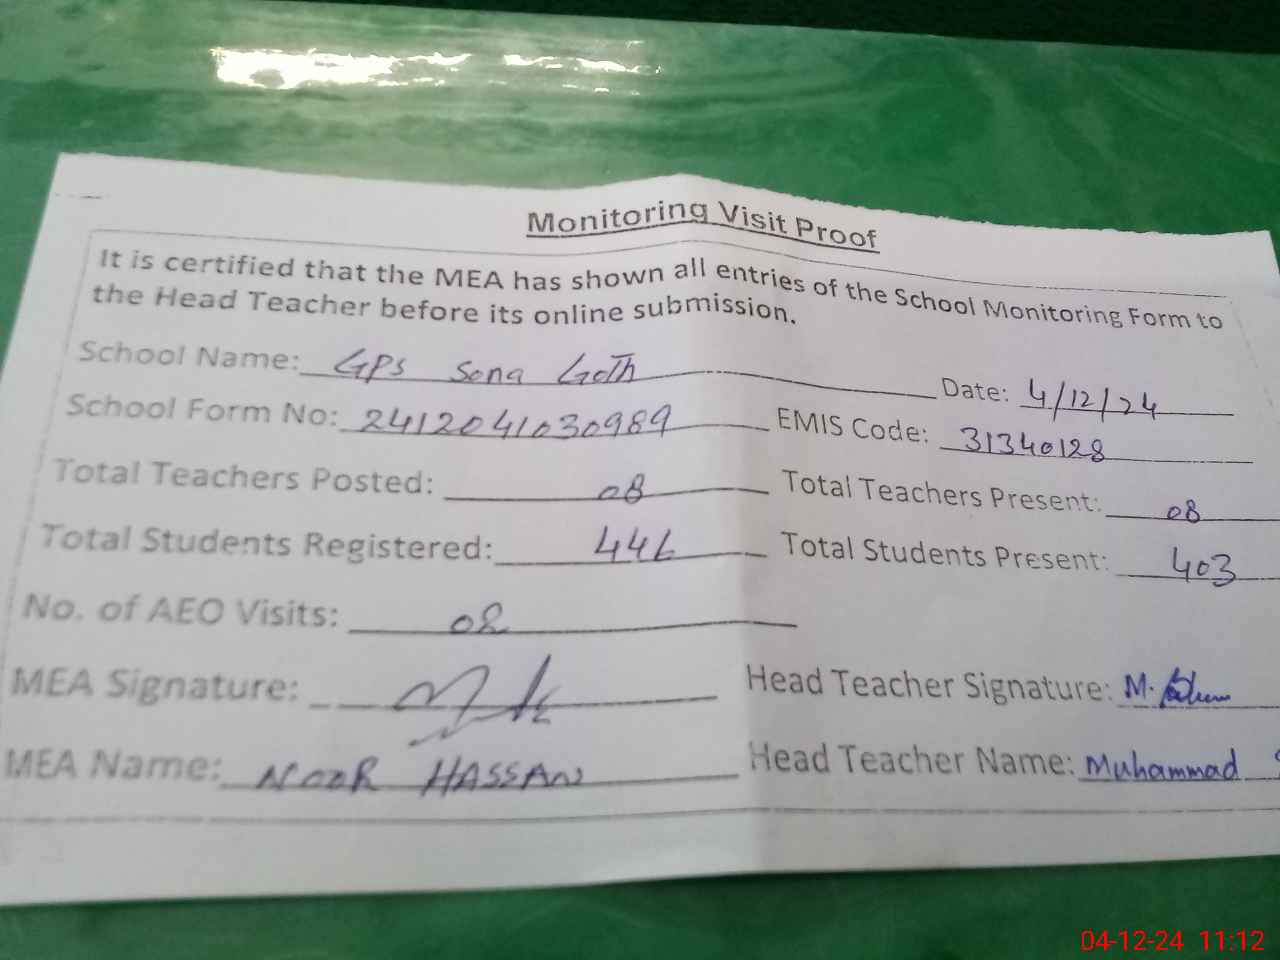 Monitoring Visit Proof
It is certified that the MEA has shown all entries of the School Monitoring Form to
the Head Teacher before its online submission.
School Name: GPS Sona Goth Date: 4/12/24
School Form No: 2412041030989 EMIS Code: 31340128
Total Teachers Posted: 08 Total Teachers Present: 08
Total Students Registered: 446 Total Students Present: 403
No. of AEO Visits: 02
MEA Signature: Head Teacher Signature: M.
MEA Name: NOOR HASSAN Head Teacher Name: Muhammad
04-12-24 11:12